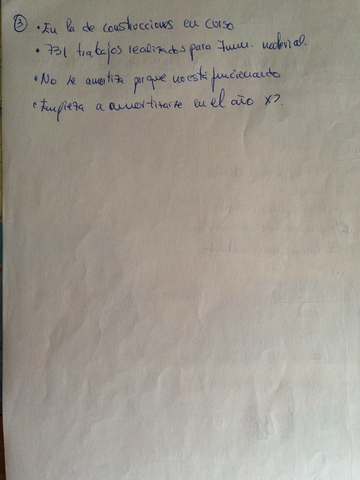 ③ • En la de construcciones en curso
• 731 trabajos realizados para Inm. material.
• No se amortiza porque no está funcionando
• Empieza a amortizarse en el año X2.